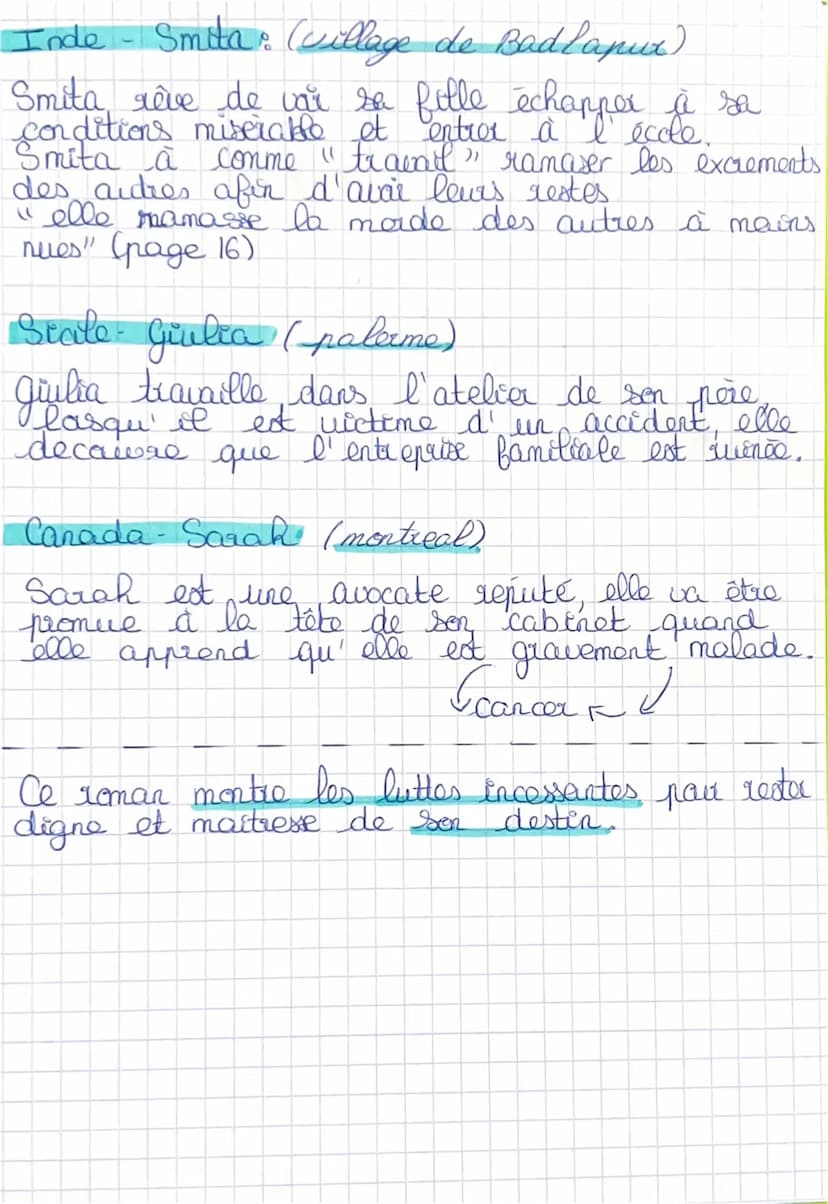 Inde - Smita : (village de Badlapur)
Smita rêve de voir sa fille échapper à sa
conditions misérable et entrer à l'école.
Smita à comme "travail" ramaser les excréments
des autres afin d'avoir leurs restes
"elle mamasse la merde des autres à mains
nues" (page 16)
Sicile - Giulia (palerme)
Giulia travaille dans l'atelier de son père,
lorsqu'il est victime d'un accident, elle
decouvre que l'entreprise familiale est ruinée.
Canada - Sarah (montreal)
Sarah est une avocate reputé, elle va être
promue à la tête de son cabinet quand
elle apprend qu'elle est gravement malade.
cancer
Ce roman montre les luttes incessantes pour rester
digne et maitresse de son destin.